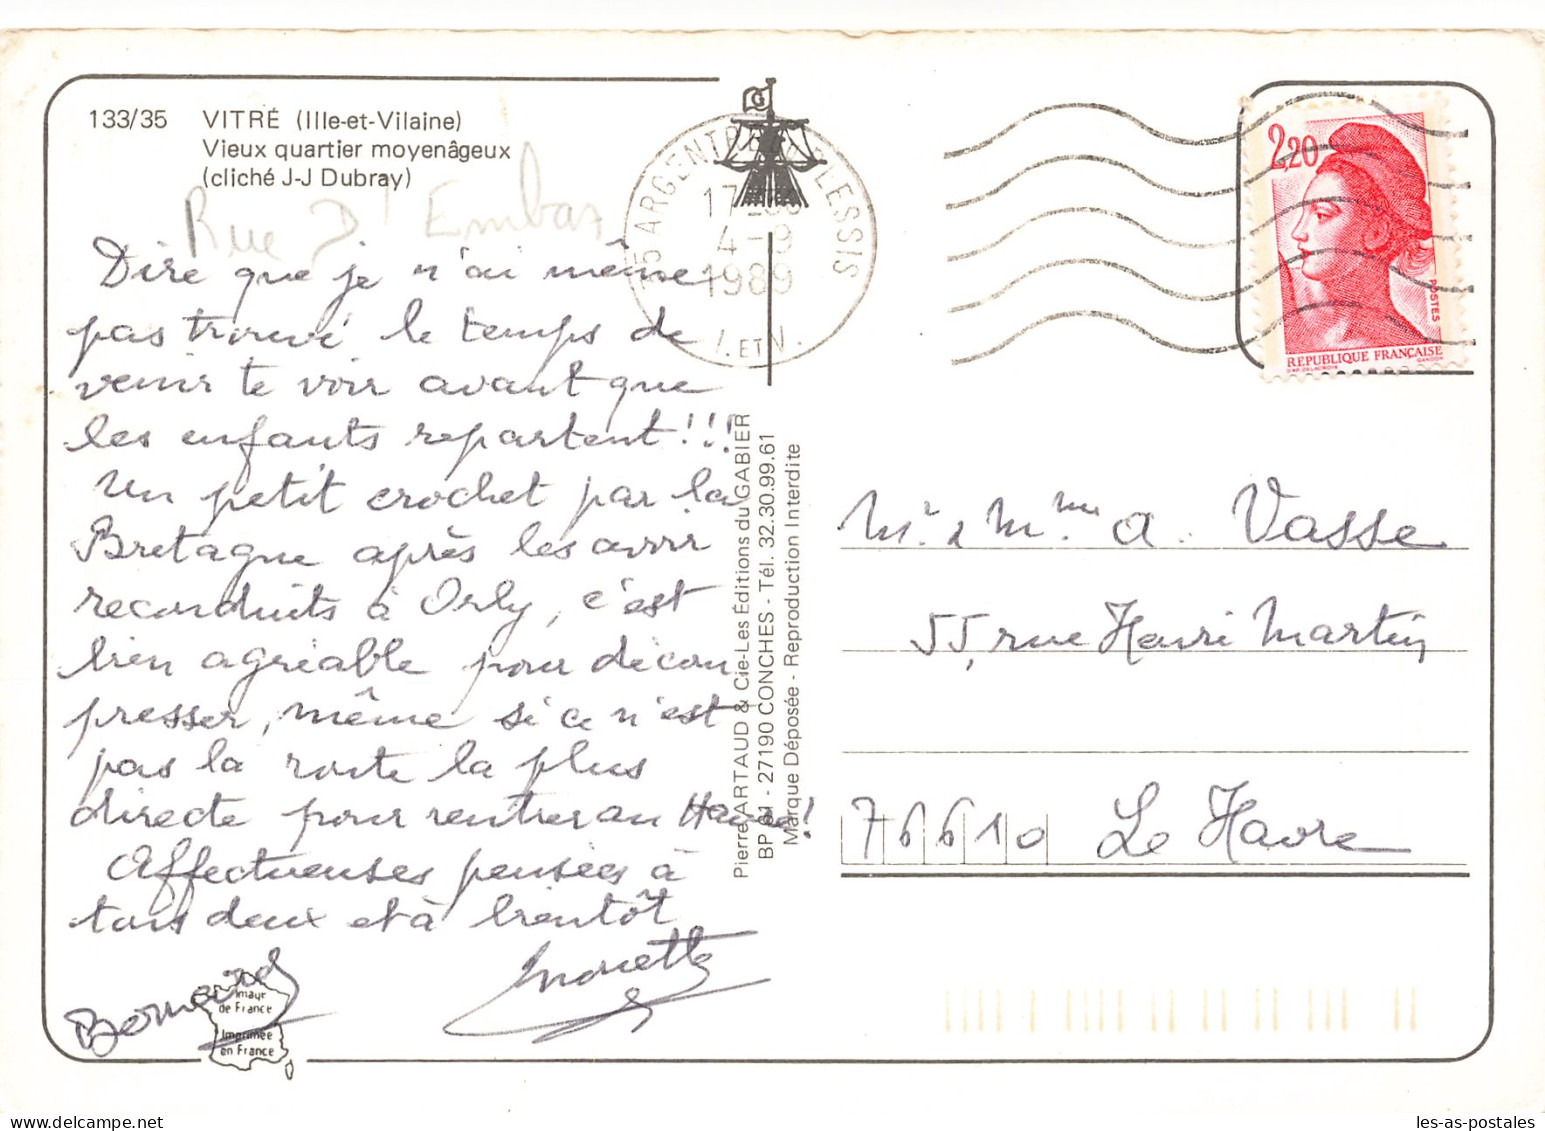 133/35 VITRÉ (Ille-et-Vilaine)
Vieux quartier moyenâgeux
(cliché J-J Dubray)
Rue D' Embas
Dire que je n'ai même
pas trouvé le temps de
venir te voir avant que
les enfants repartent!!!
Un petit crochet par la
Bretagne après les avoir
reconduits à Orly, c'est
bien agréable pour décom
presser, même si ce n'est
pas la route la plus
directe pour rentrer au Havre!
Affectueuses pensées à
tous deux et à bientôt
Bernard
Image
de France
Imprimée
en France
G
35 ARGENTRE DU PLESSIS
17
4-9
1989
I. ET V.
Pierre ARTAUD & Cie-Les Éditions du GABIER
BP 61 - 27190 CONCHES - Tél. 32.30.99.61
Marque Déposée - Reproduction Interdite
2,20
POSTES
RÉPUBLIQUE FRANÇAISE
GANDON
D'AP. DELACROIX
Mr & Mme A. Vasse
55, rue Henri Martin
76610 Le Havre
les-as-postales